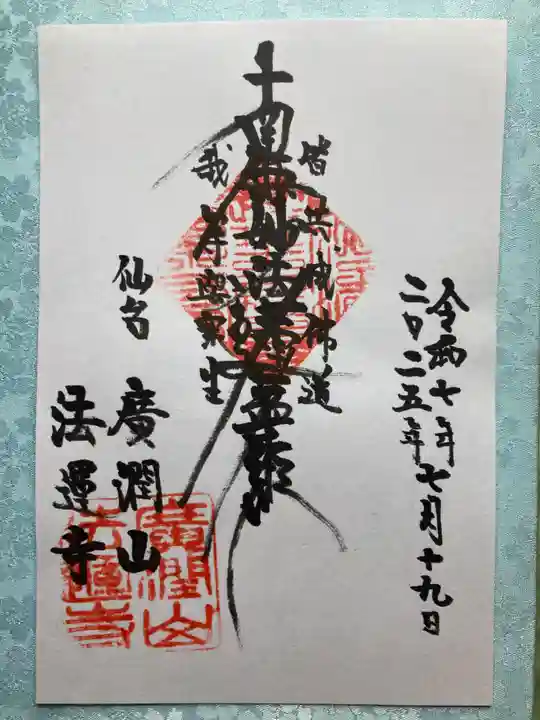 令和七年七月十九日
二〇二五年
皆共成佛道
南無妙法蓮華経
我等與衆生
仙台
廣潤山
法運寺
廣潤山
法運寺